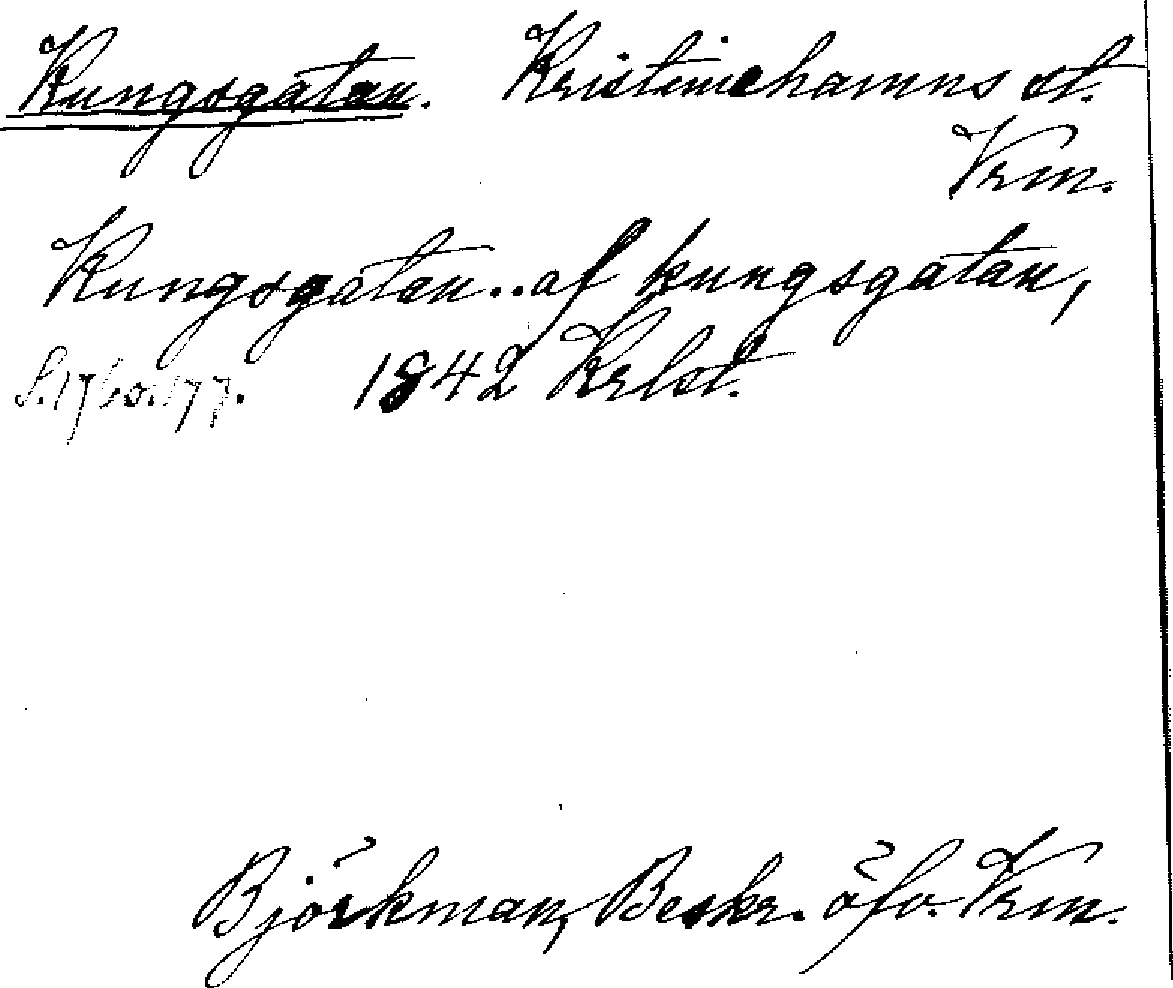 Kungsgatan. Kristinehamns st.
Vrm.
Kungsgatan.. af kungsgatan,
S. 176 o. 177. 1842 Krlst.
Björkman, Beskr. öfv. Vrm.